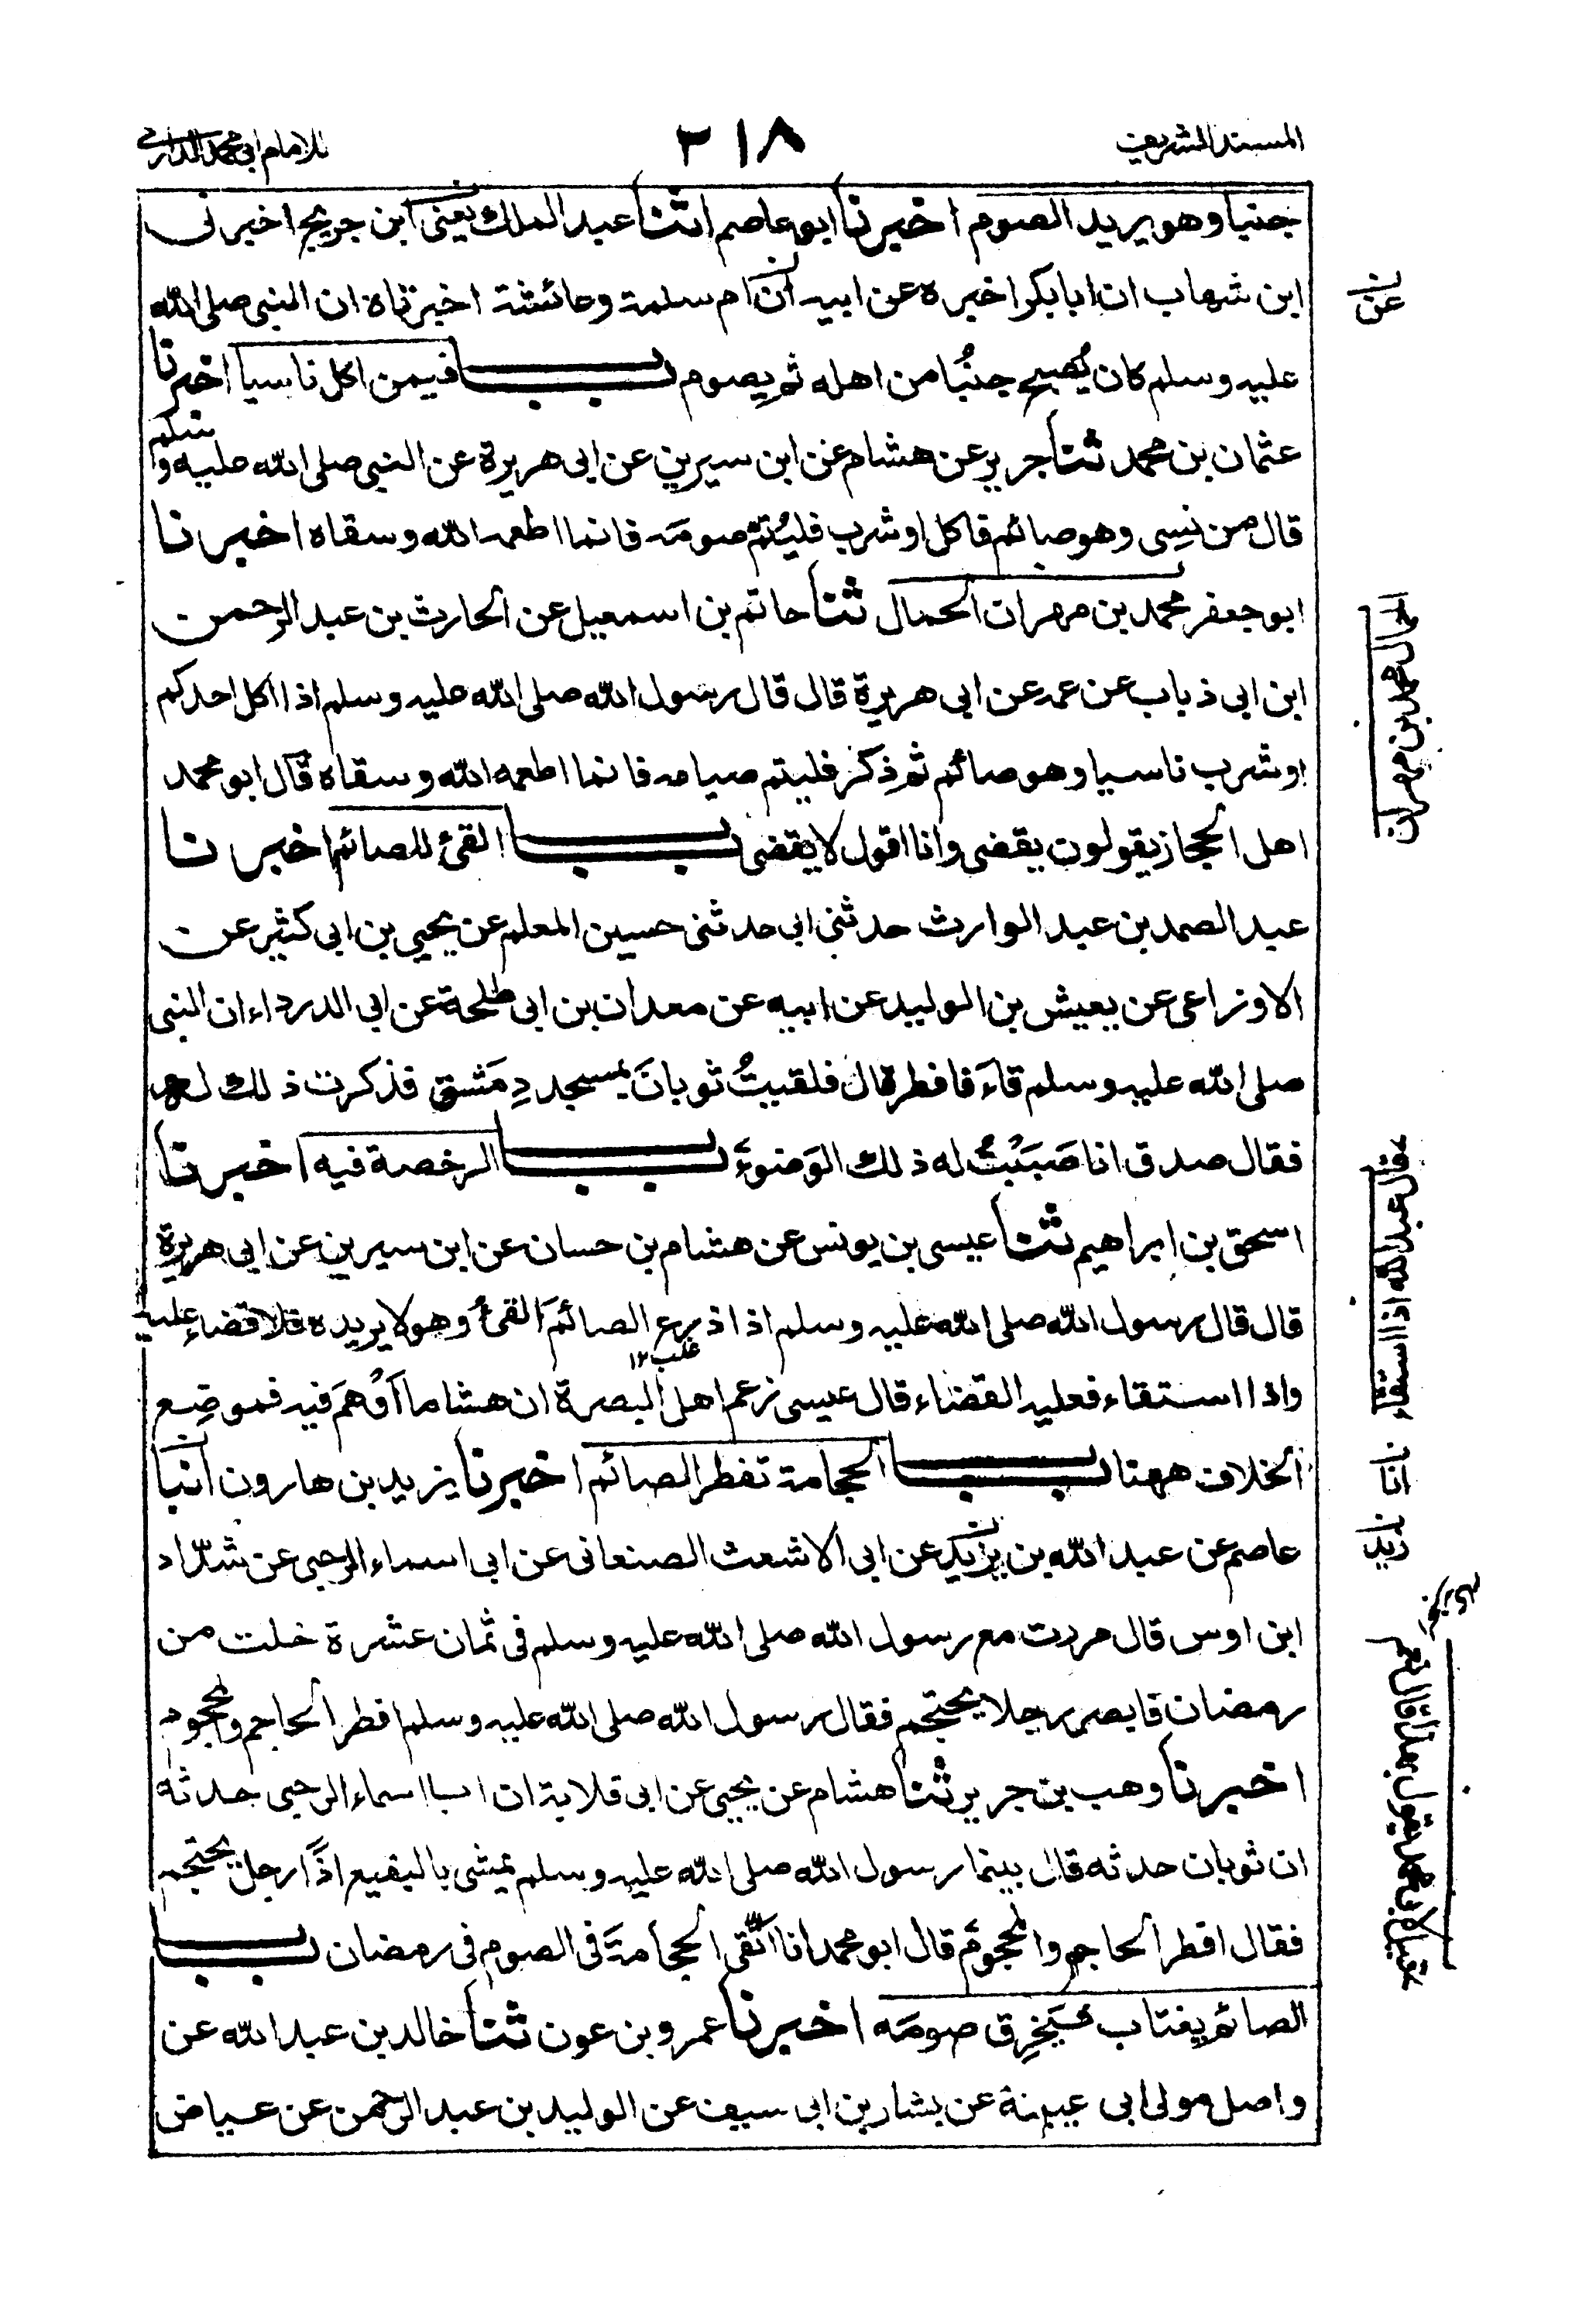 المسند الشريف
٢١٨
للامام ابى محمد الدارمى
جنبا وهو يريد الصوم اخبرنا ابو عاصم اثنا عبد الملك يعنى ابن جريج اخبرنى
ابن شهاب ان ابا بكر اخبره عن ابيه ان ام سلمة وعائشة اخبرتاه ان النبى صلى الله
عليه وسلم كان يُصبح جنبُا من اهله ثم يصوم بــاب فيمن اكل ناسيا اخبرنا
عثمان بن محمد ثنا جرير عن هشام عن ابن سيرين عن ابى هريرة عن النبى صلى الله عليه وسلم
قال من نسِى وهو صائم فاكل او شرب فليُتمّ صومَه فانما اطعمه الله وسقاه اخبرنا
ابو جعفر محمد بن مهران الحمال ثنا حاتم بن اسمعيل عن الحارث بن عبد الرحمن
ابن ابى ذباب عن عمه عن ابى هريرة قال قال رسول الله صلى الله عليه وسلم اذا اكل احدكم
او شرب ناسيا وهو صائم ثم ذكر فليتم صيامه فانما اطعمه الله وسقاه قال ابو محمد
اهل الحجاز يقولون يقضى وانا اقول لا يقضى بــاب القئ للصائم اخبرنا
عبد الصمد بن عبد الوارث حدثنى ابى حدثنى حسين المعلم عن يحيى بن ابى كثير عن
الاوزاعى عن يعيش بن الوليد عن ابيه عن معدان بن ابى طلحة عن ابى الدرداء ان النبى
صلى الله عليه وسلم قاءَ فافطر قال فلقيتُ ثوبانَ بمسجد دِمَشق فذكرت ذلك له
فقال صدق انا صَبَبْتُ له ذلك الوَضوءَ بــاب الرخصة فيه اخبرنا
اسحق بن ابراهيم ثنا عيسى بن يونس عن هشام بن حسان عن ابن سيرين عن ابى هريرة
قال قال رسول الله صلى الله عليه وسلم اذا ذرع الصائمَ القئُ وهو لا يريده فلا قضاء عليه
غلب ١٢
واذا استقاء فعليه القضاء قال عيسى زعم اهل البصرة ان هشاما اَوْهَمَ فيه فموضِع
الخلاف ههنا بــاب الحجامة تفطر الصائم اخبرنا يزيد بن هارون انبا
عاصم عن عبد الله بن يزيد عن ابى الاشعث الصنعانى عن ابى اسماء الرحبى عن شدّاد
ابن اوس قال مررت مع رسول الله صلى الله عليه وسلم فى ثمان عشرة خلت من
رمضان فابصر رجلا يحتجم فقال رسول الله صلى الله عليه وسلم افطر الحاجم والمحجوم
اخبرنا وهب بن جرير ثنا هشام عن يحيى عن ابى قلابة ان ابا اسماء الرحبى حدثه
ان ثوبان حدثه قال بينما رسول الله صلى الله عليه وسلم يمشى بالبقيع اذًا رجل يحتجم
فقال افطر الحاجم والمحجومُ قال ابو محمد انا اتّقى الحجامةَ فى الصوم فى رمضان بــاب
الصائم يغتاب فيَخرِق صومَه اخبرنا عمرو بن عون ثنا خالد بن عبد الله عن
واصل مولى ابى عيينة عن بشار بن ابى سيف عن الوليد بن عبد الرحمن عن عياض
عن
الحمال محمد بن مهران
فقال عبد الله اذا استقاء
انا
زيد
قيل لابى محمد تقول بهذا قال نعم